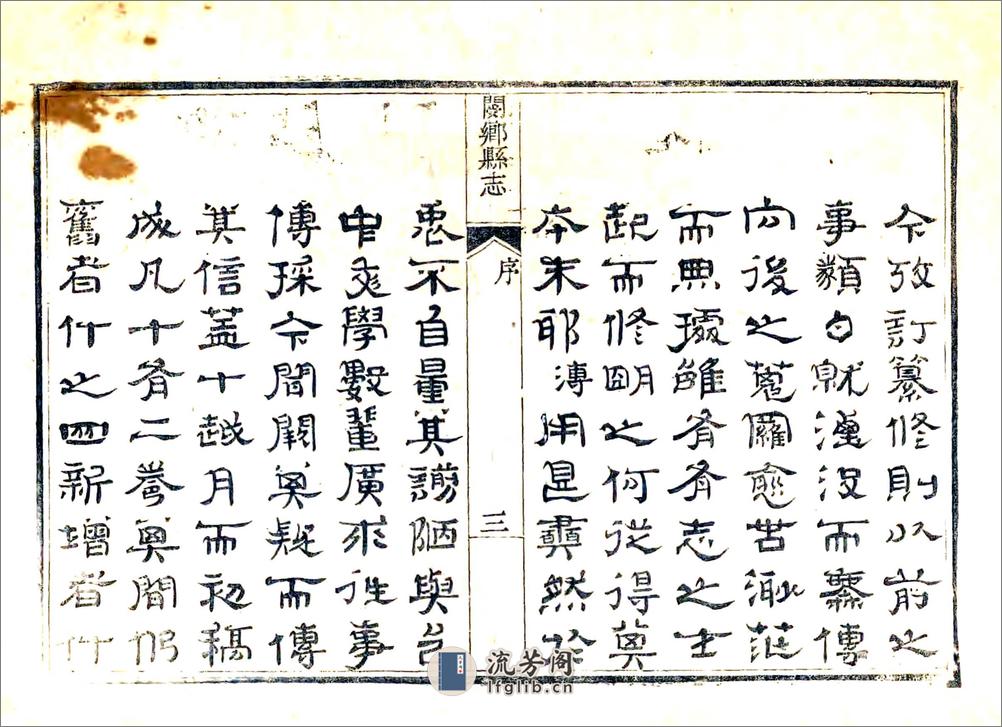 今攷訂纂修則以前之
事類日就湮没而無傳
向後之蒐羅愈苦渺茫
而典據雖有有志之士
起而修明之何從得其
本末耶溥用是衋然於
閿鄉縣志
序
三
不自量其謭陋與邑
中學數輩廣求往事
傳採令聞闕其疑而傳
其信蓋十越月而初稿
成凡十有二卷其間仍
舊者什之四新增者什
流芳阁
lfglib.cn